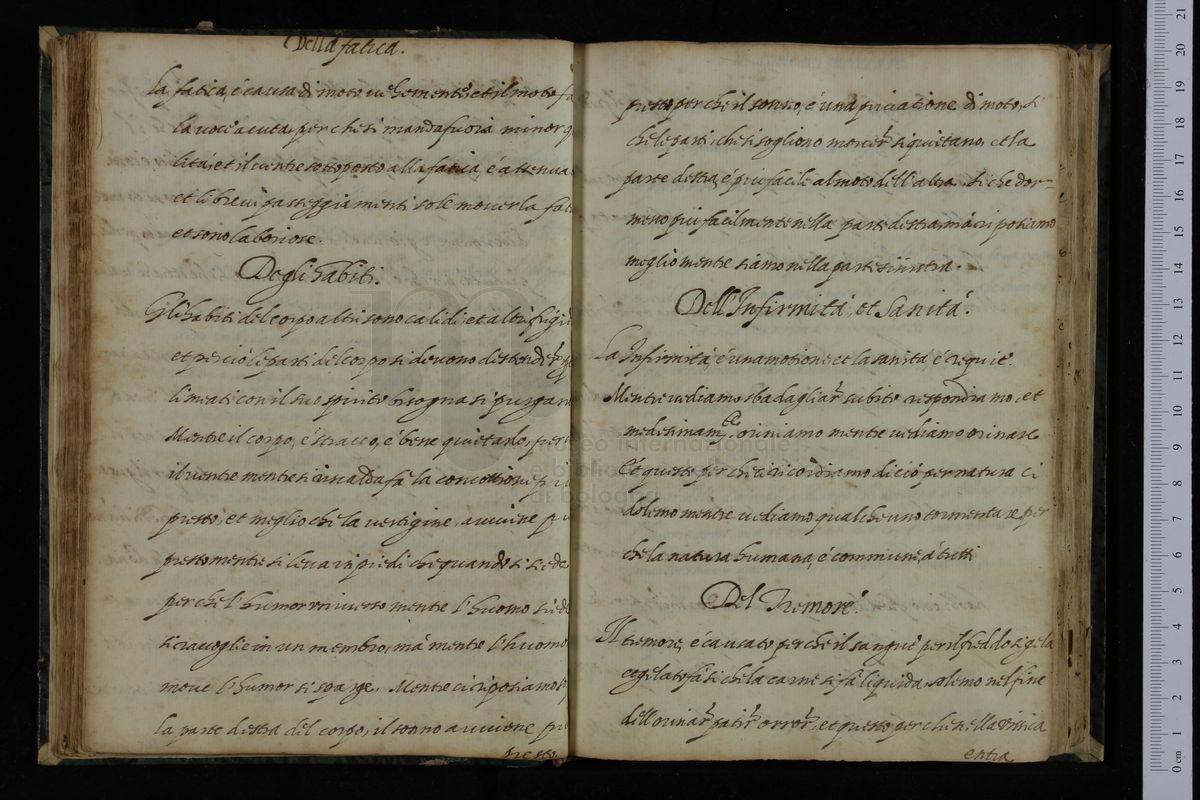 Della fatica.
La fatica, é causa di moto vehemente, et il moto fa
la voce acuta, perche si manda fuora minor q
lità, et il ventre sottoposto alla fatica, é attenua
et li brevi passeggiamenti sole mover la fat
et sono laboriose.
Degli habiti.
Gl'habiti del corpo altri sono calidi, et altri frigi
et perció le parti del corpo si devono
con il suo spirito bisogna si purgan
Mentre il corpo, é stracco, é bene quietarlo, per
il ventre mentre si riscalda fa la concottione piu
presto, et meglio che la vertigine, avviene piu
presto mentre si leva in piedi che quando si siede
perche l'humor universo mentre l'huomo siede
si raccoglie in un membro, má mentre l'huomo
move l'humor si sparge. Mentre ci riposiamo
la parte destra del corpo, il sonno avviene piu
presto
presto perche il sonno, é una privatione di moto, si
che le parti, che si sogliono mover si quietano, et la
parte destra, é piu facile al moto dell'altra, si che dor-
meno piu facilmente nella parte destra, má ci riposiamo
meglio mentre siamo nella parte sinistra.
Dell'Infirmitá, et Sanitá.
La Infirmitá, é una motione et la sanitá, é requie.
Mentre vediamo sbadagliar subito respondiamo, et
medesimam.te oriniamo mente vediamo orinare
Et questo perche ci ricordiamo di ció per natura ci
dolemo mentre vediamo qualcheuno tormentare per
che la natura humana, é commune, á tutti
Del Tremore.
Il tremore, é causato perche il sangue per il freddo si gela
e gelato fá si che la carne si fá liquida, solemo nel fine
dell'orinar patir orror, et questo perche nella vissica
entra
museo internazionale
e biblioteca
di bologna
0 cm 1 2 3 4 5 6 7 8 9 10 11 12 13 14 15 16 17 18 19 20 21